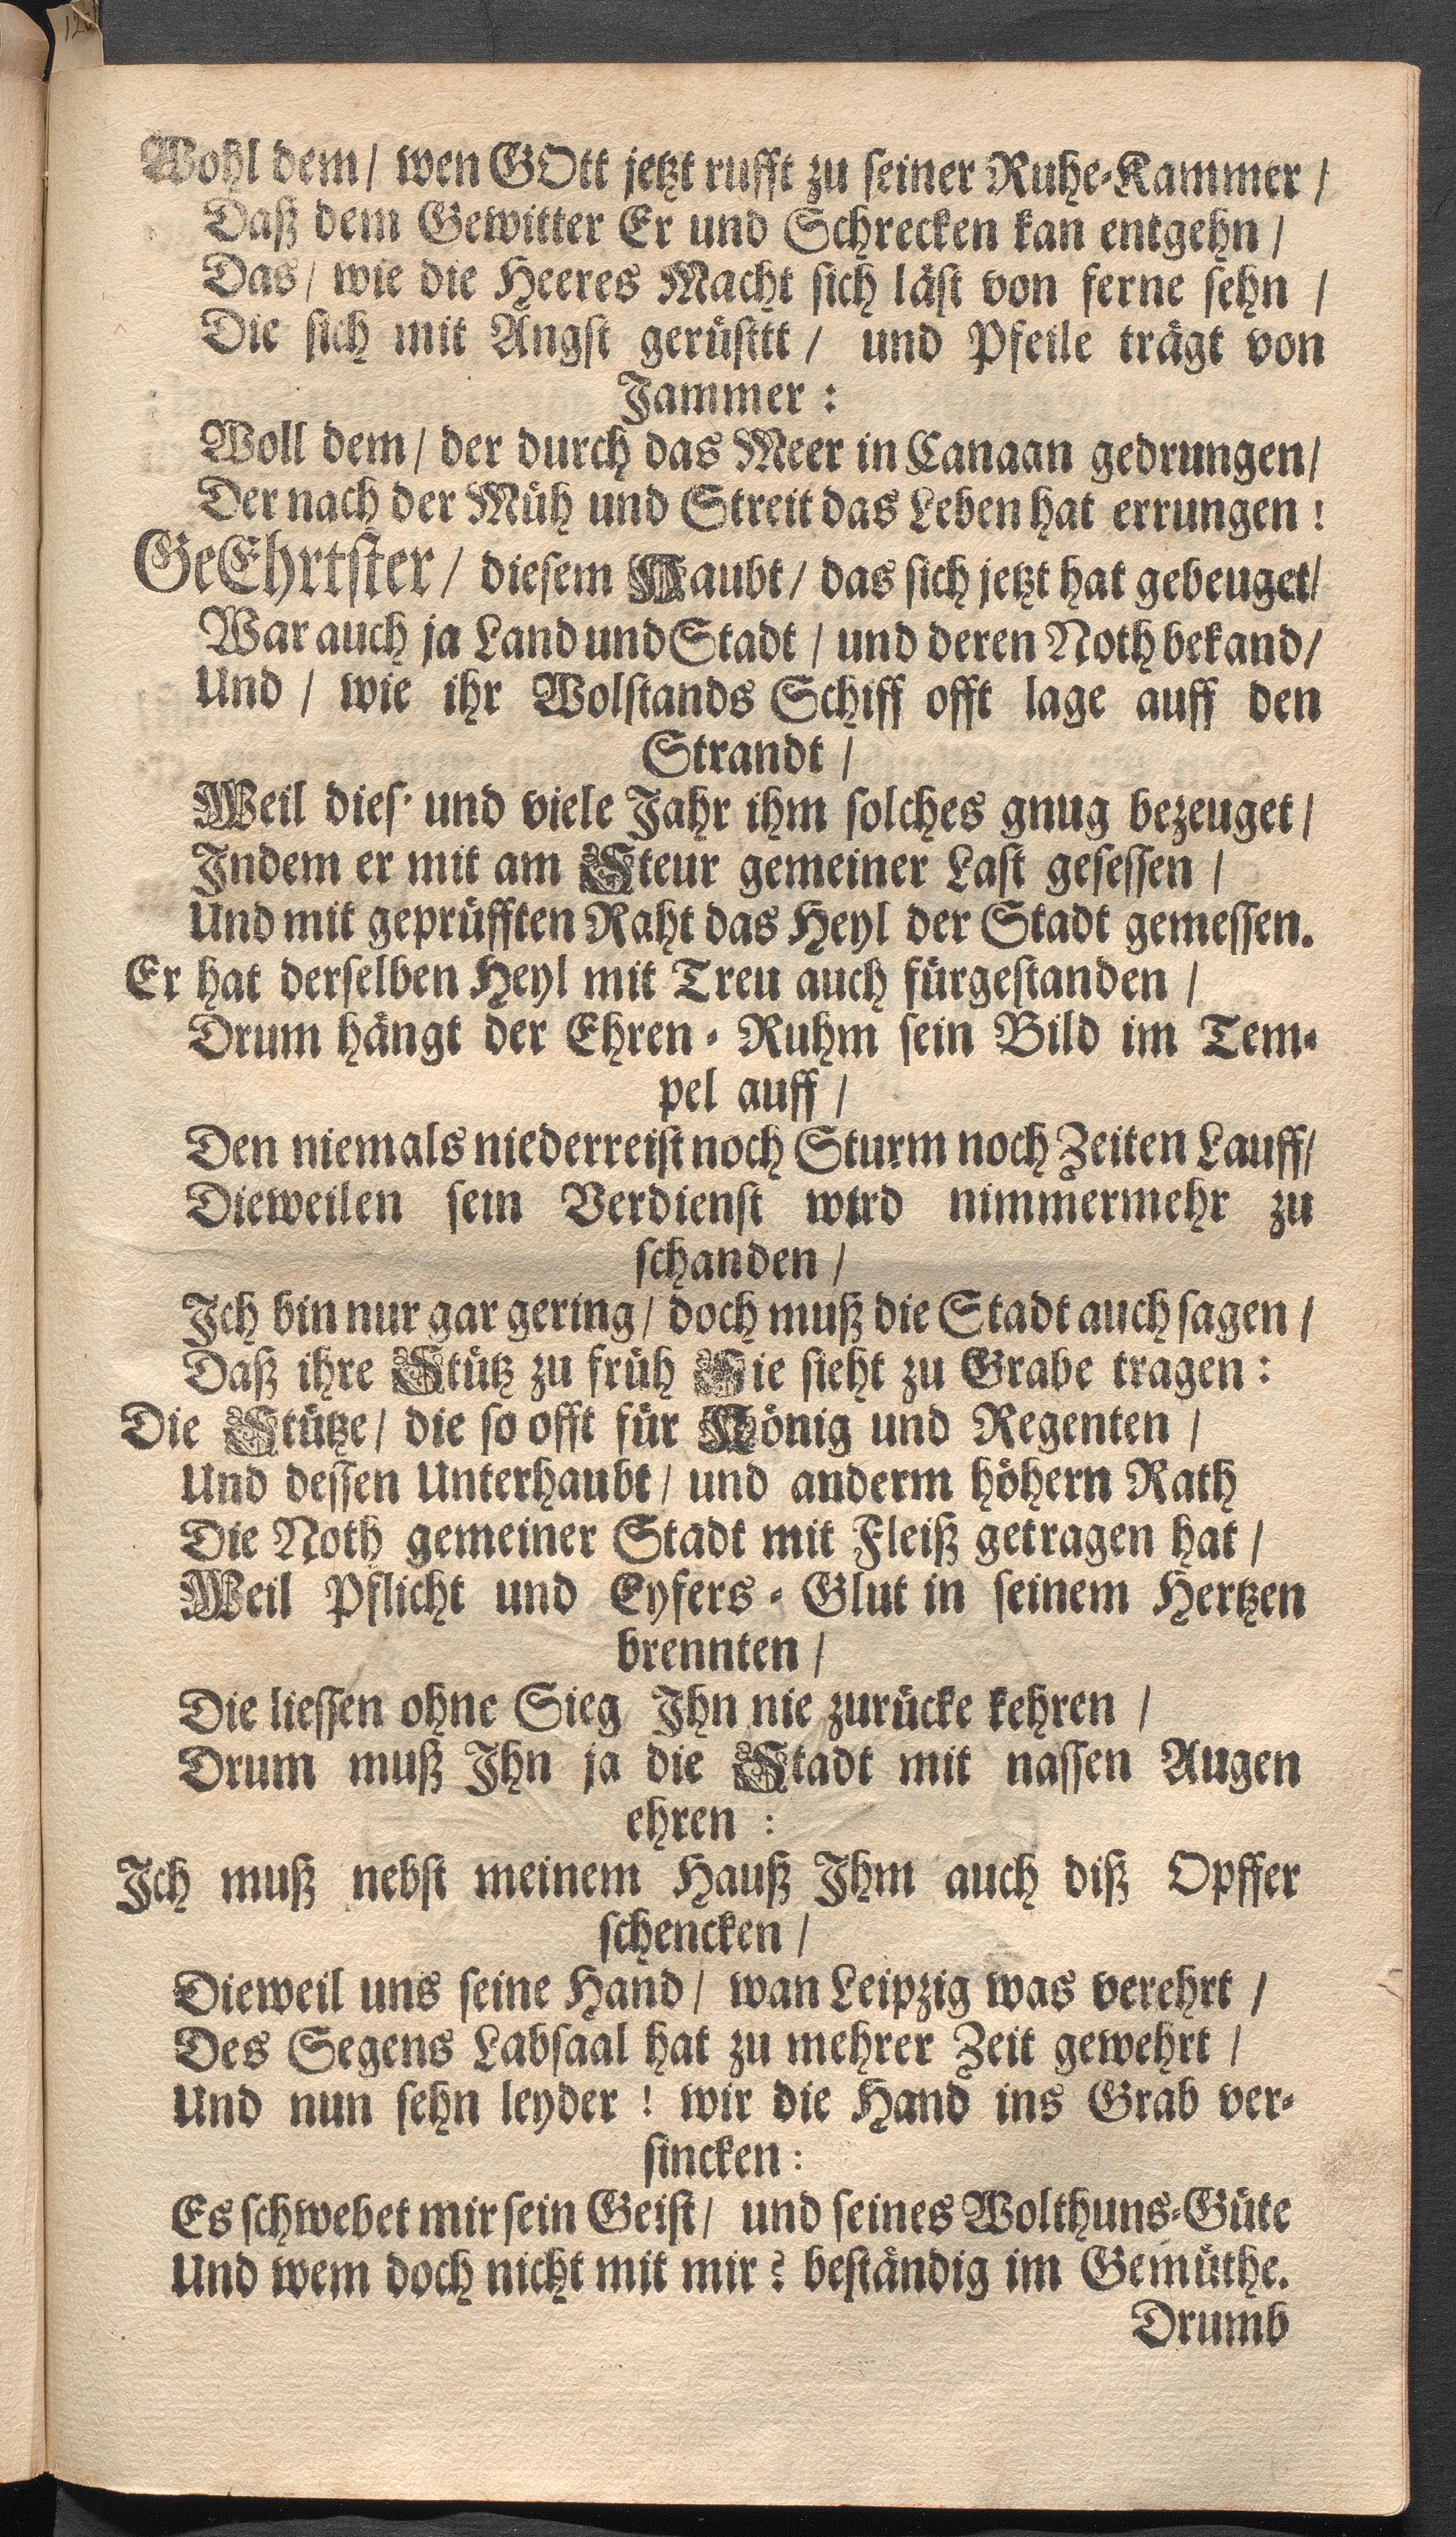 126
Wohl dem / wen GOtt jetzt rufft zu seiner Ruhe-Kammer /
Daß dem Gewitter Er und Schrecken kan entgehn /
Das / wie die Heeres Macht sich läst von ferne sehn /
Die sich mit Angst gerüsttt / und Pfeile trägt von
Jammer :
Woll dem / der durch das Meer in Canaan gedrungen /
Der nach der Müh und Streit das Leben hat errungen !
GeEhrtster / diesem Haubt / das sich jetzt hat gebeuget /
War auch ja Land und Stadt / und deren Noth bekand /
Und / wie ihr Wolstands Schiff offt lage auff den
Strandt /
Weil dies' und viele Jahr ihm solches gnug bezeuget /
Indem er mit am Steur gemeiner Last gesessen /
Und mit geprüfften Raht das Heyl der Stadt gemessen.
Er hat derselben Heyl mit Treu auch fürgestanden /
Drum hängt der Ehren-Ruhm sein Bild im Tem-
pel auff /
Den niemals niederreist noch Sturm noch Zeiten Lauff /
Dieweilen sein Verdienst wird nimmermehr zu
schanden /
Ich bin nur gar gering / doch muß die Stadt auch sagen /
Daß ihre Stütz zu früh Sie sieht zu Grabe tragen :
Die Stütze / die so offt für König und Regenten /
Und dessen Unterhaubt / und anderm höhern Rath
Die Noth gemeiner Stadt mit Fleiß getragen hat /
Weil Pflicht und Eyfers-Glut in seinem Hertzen
brennten /
Die liessen ohne Sieg Ihn nie zurücke kehren /
Drum muß Ihn ja die Stadt mit nassen Augen
ehren :
Ich muß nebst meinem Hauß Ihm auch diß Opffer
schencken /
Dieweil uns seine Hand / wan Leipzig was verehrt /
Des Segens Labsaal hat zu mehrer Zeit gewehrt /
Und nun sehn leyder ! wir die Hand ins Grab ver-
sincken :
Es schwebet mir sein Geist / und seines Wolthuns-Güte
Und wem doch nicht mit mir ? beständig im Gemüthe.
Drumb